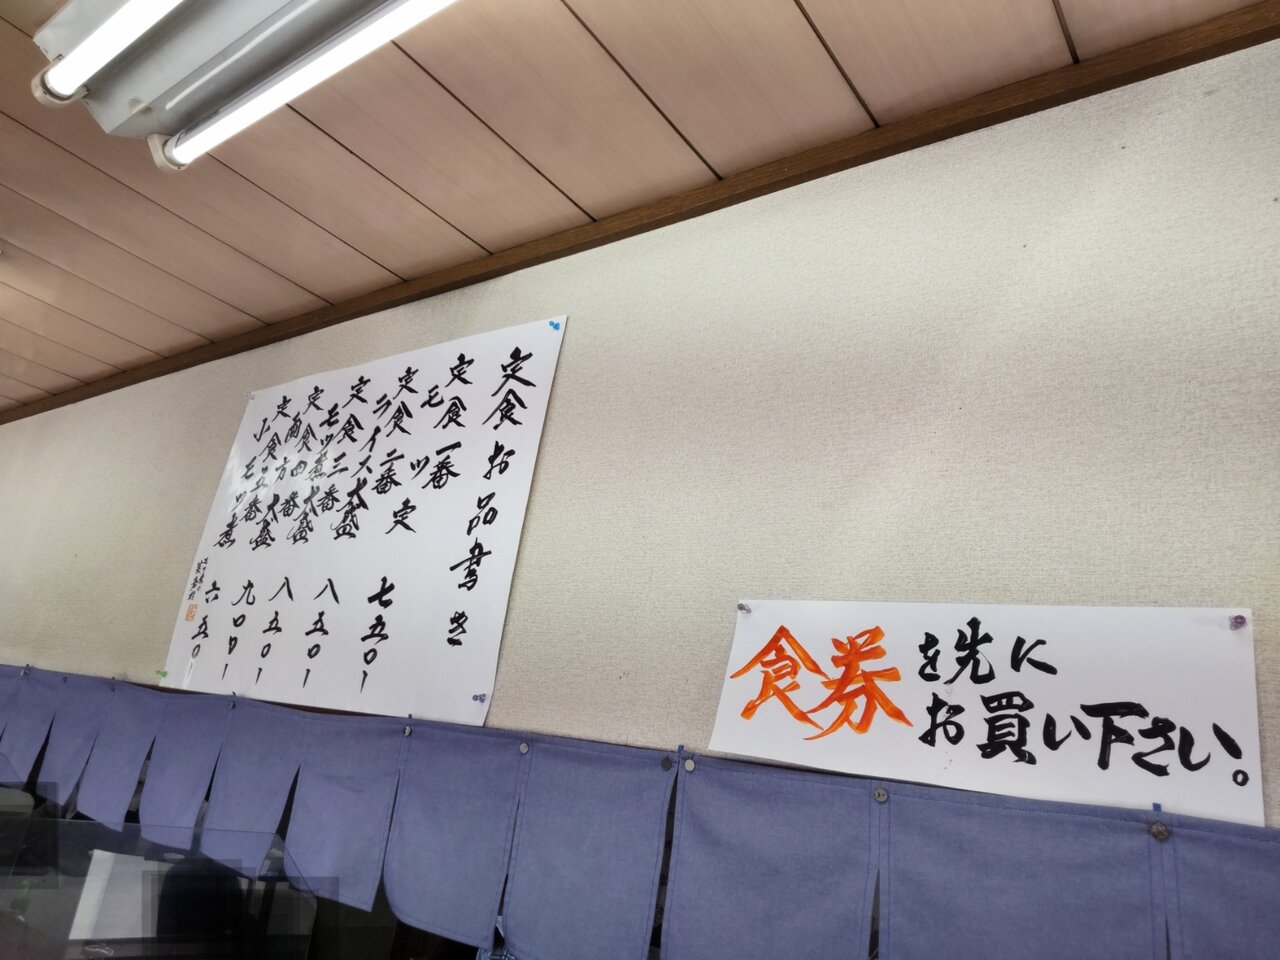 定食お品書き
定食一番
モツ定 七五〇ー
定食二番
ライス大盛 八五〇ー
定食三番
モツ煮大盛 八五〇ー
定食四番
両方大盛 九〇〇ー
定食五番
小モツ煮 六五〇ー
食券を先に
お買い下さい。